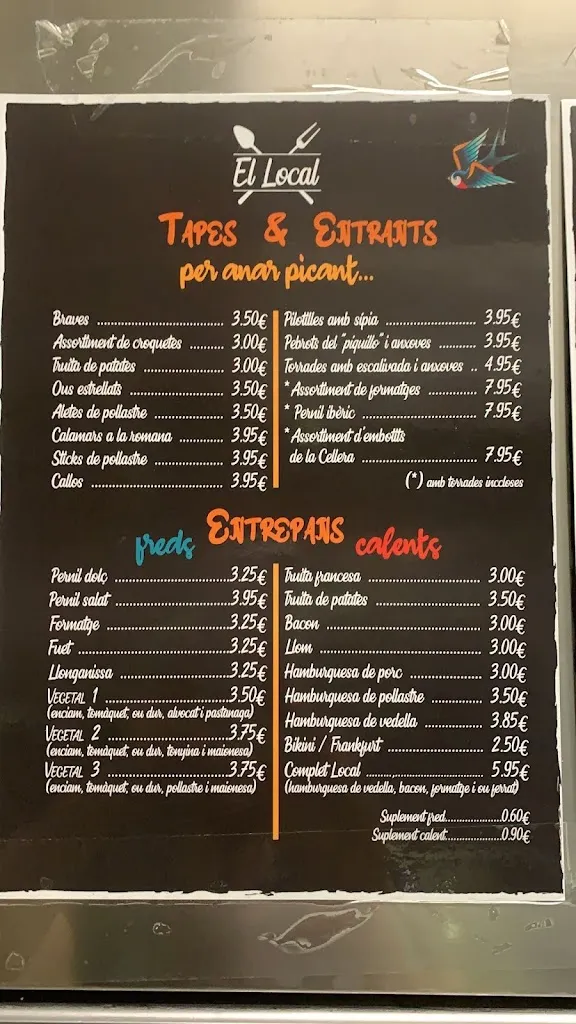 El Local
TAPES & ENTRANTS
per anar picant...
Braves ........ 3.50€
Assortiment de croquetes ........ 3.00€
Truita de patates ........ 3.00€
Ous estrellats ........ 3.50€
Aletes de pollastre ........ 3.50€
Calamars a la romana ........ 3.95€
Sticks de pollastre ........ 3.95€
Callos ........ 3.95€
Pilotilles amb sípia ........ 3.95€
Pebrots del "piquillo" i anxoves ........ 3.95€
Torrades amb escalivada i anxoves .. 4.95€
* Assortiment de formatges ........ 7.95€
* Pernil ibèric ........ 7.95€
* Assortiment d'embotits
de la Cellera ........ 7.95€
(*) amb torrades inccloses
ENTREPANS
freds
calents
Pernil dolç ........ 3.25€
Pernil salat ........ 3.95€
Formatge ........ 3.25€
Fuet ........ 3.25€
Llonganissa ........ 3.25€
VEGETAL 1 ........ 3.50€
(enciam, tomàquet, ou dur, alvocat i pastanaga)
VEGETAL 2 ........ 3.75€
(enciam, tomàquet, ou dur, tonyina i maionesa)
VEGETAL 3 ........ 3.75€
(enciam, tomàquet, ou dur, pollastre i maionesa)
Truita francesa ........ 3.00€
Truita de patates ........ 3.50€
Bacon ........ 3.00€
Llom ........ 3.00€
Hamburguesa de porc ........ 3.00€
Hamburguesa de pollastre ........ 3.50€
Hamburguesa de vedella ........ 3.85€
Bikini / Frankfurt ........ 2.50€
Complet Local ........ 5.95€
(hamburguesa de vedella, bacon, formatge i ou ferrat)
Suplement fred........0.60€
Suplement calent........0.90€